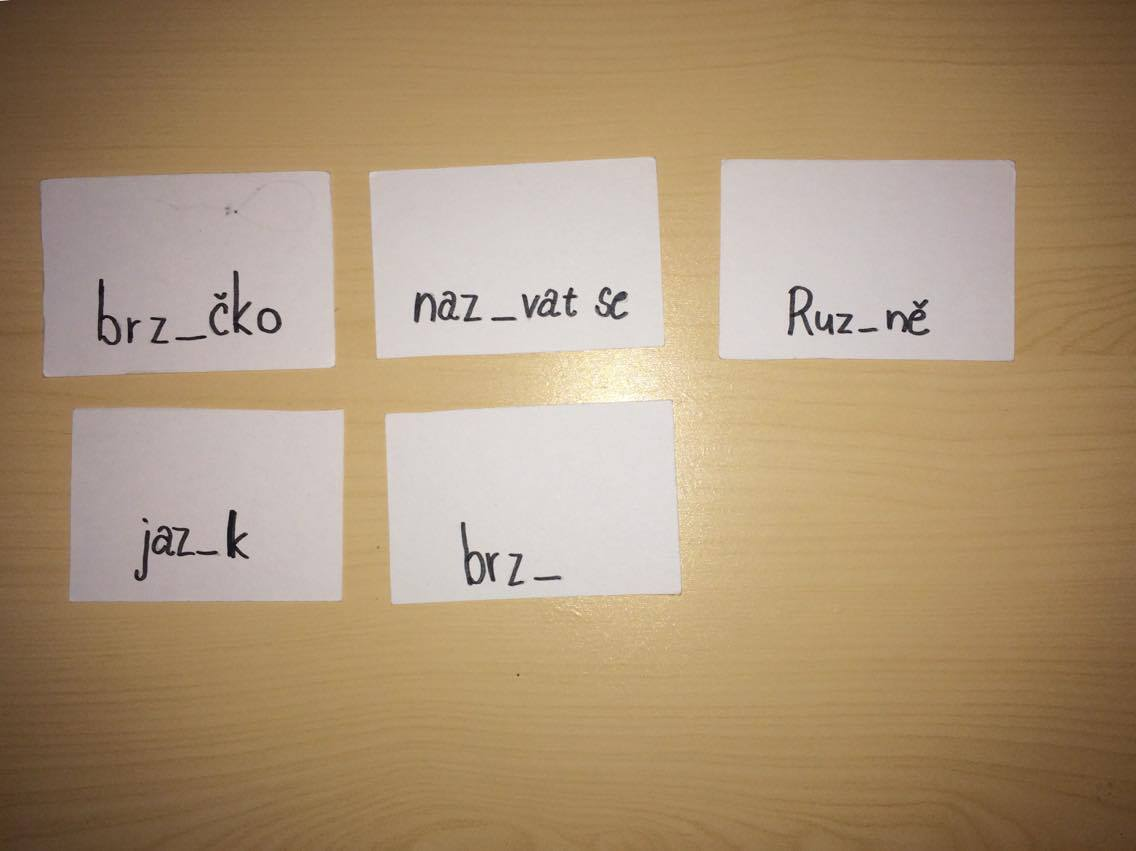 brz_čko
naz_vat se
Ruz_ně
jaz_k
brz_